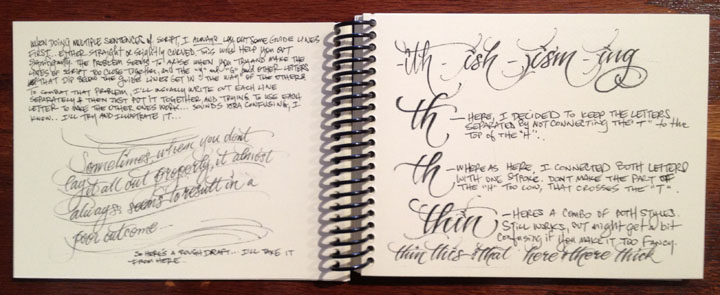 WHEN DOING MULTIPLE SENTENCES of SCRIPT, I ALWAYS LAY OUT SOME GUIDE LINES
FIRST... EITHER STRAIGHT or SLIGHTLY CURVED. THIS WILL HELP YOU OUT
THE PROBLEM SEEMS TO ARISE WHEN YOU TRY AND MAKE THE
LINES OF SCRIPT TOO CLOSE TOGETHER, AND THE "Y" and "G" and OTHER LETTERS
THAT DIP BELOW THE GUIDE LINES GET IN THE WAY OF THE OTHERS
TO COMBAT THAT PROBLEM, I'LL USUALLY WRITE OUT EACH LINE
SEPARATELY & THEN JUST PUT IT TOGETHER AND TRYING TO USE EACH
LETTER TO MAKE THE OTHER ONES WORK... SOUNDS KINDA CONFUSING, I
KNOW.. I'LL TRY AND ILLUSTRATE IT...
Sometimes when you don't
lay it all out properly, it almost
always seems to result in a
poor outcome...
SO HERE'S A ROUGH DRAFT... I'LL TAKE IT
FROM HERE..
-ith -ish -jism -jing
th — HERE, I DECIDED TO KEEP THE LETTERS
SEPARATED BY NOT CONNECTING THE "T" to the
TOP OF THE "H".
th — WHERE AS HERE, I CONNECTED BOTH LETTERS
WITH ONE STROKE. DON'T MAKE THE PART OF
THE "H" TOO LOW, THAT CROSSES THE "T".
thin — HERE'S A COMBO OF BOTH STYLES.
STILL WORKS, BUT MIGHT GET A bit
CONFUSING IF YOU MAKE IT TOO FANCY.
thin this & that here & there thick